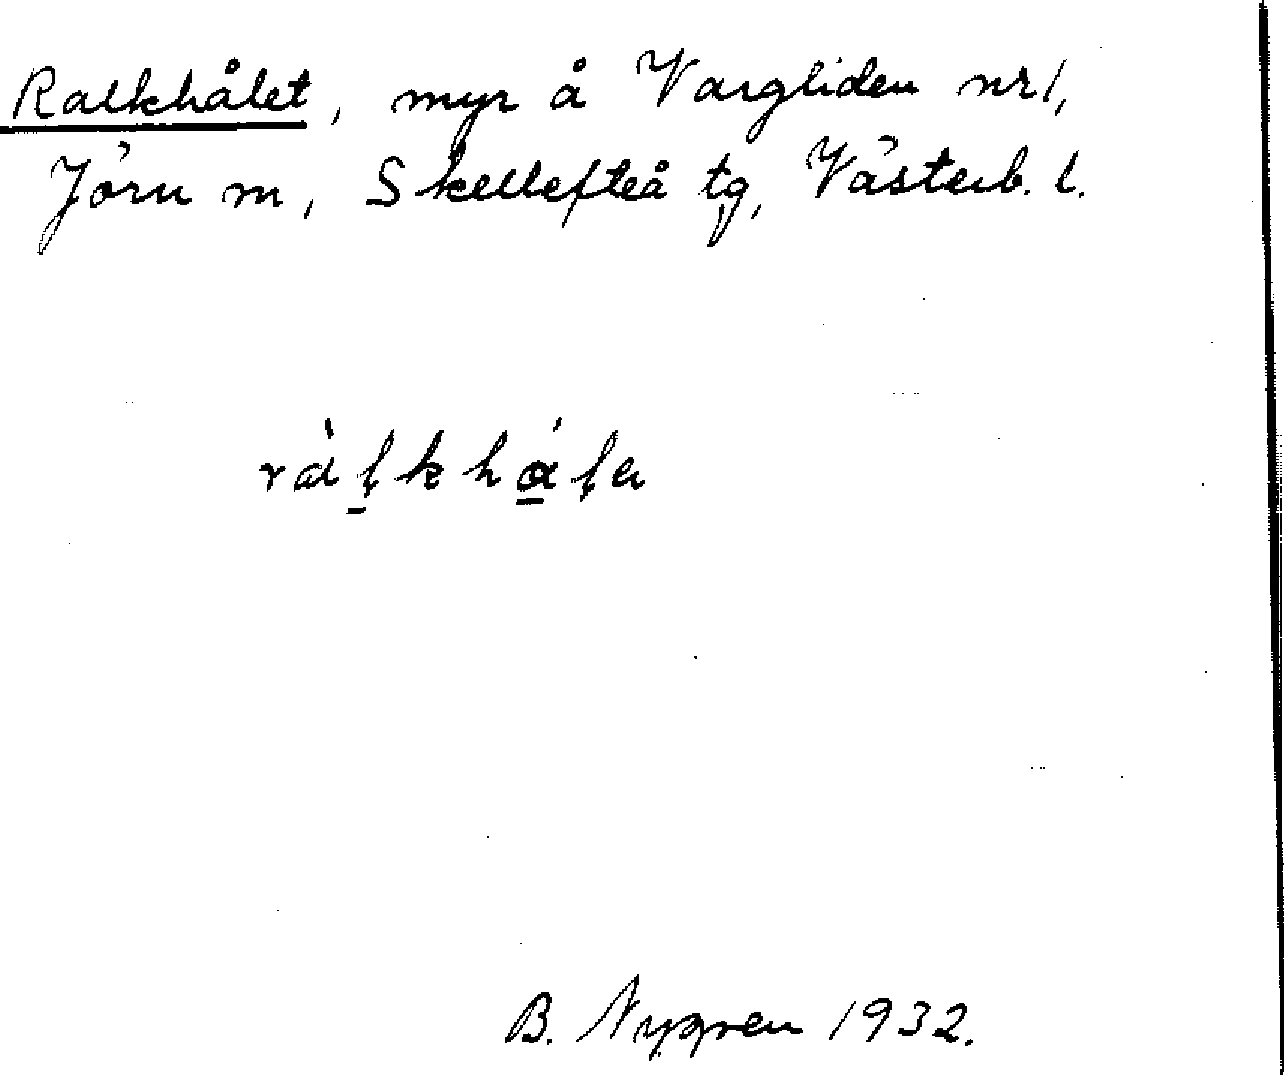 Ralkhålet, myr å Vargliden nr 1,
Jörn m, Skellefteå tg, Västerb. l.
B. Nygren 1932.